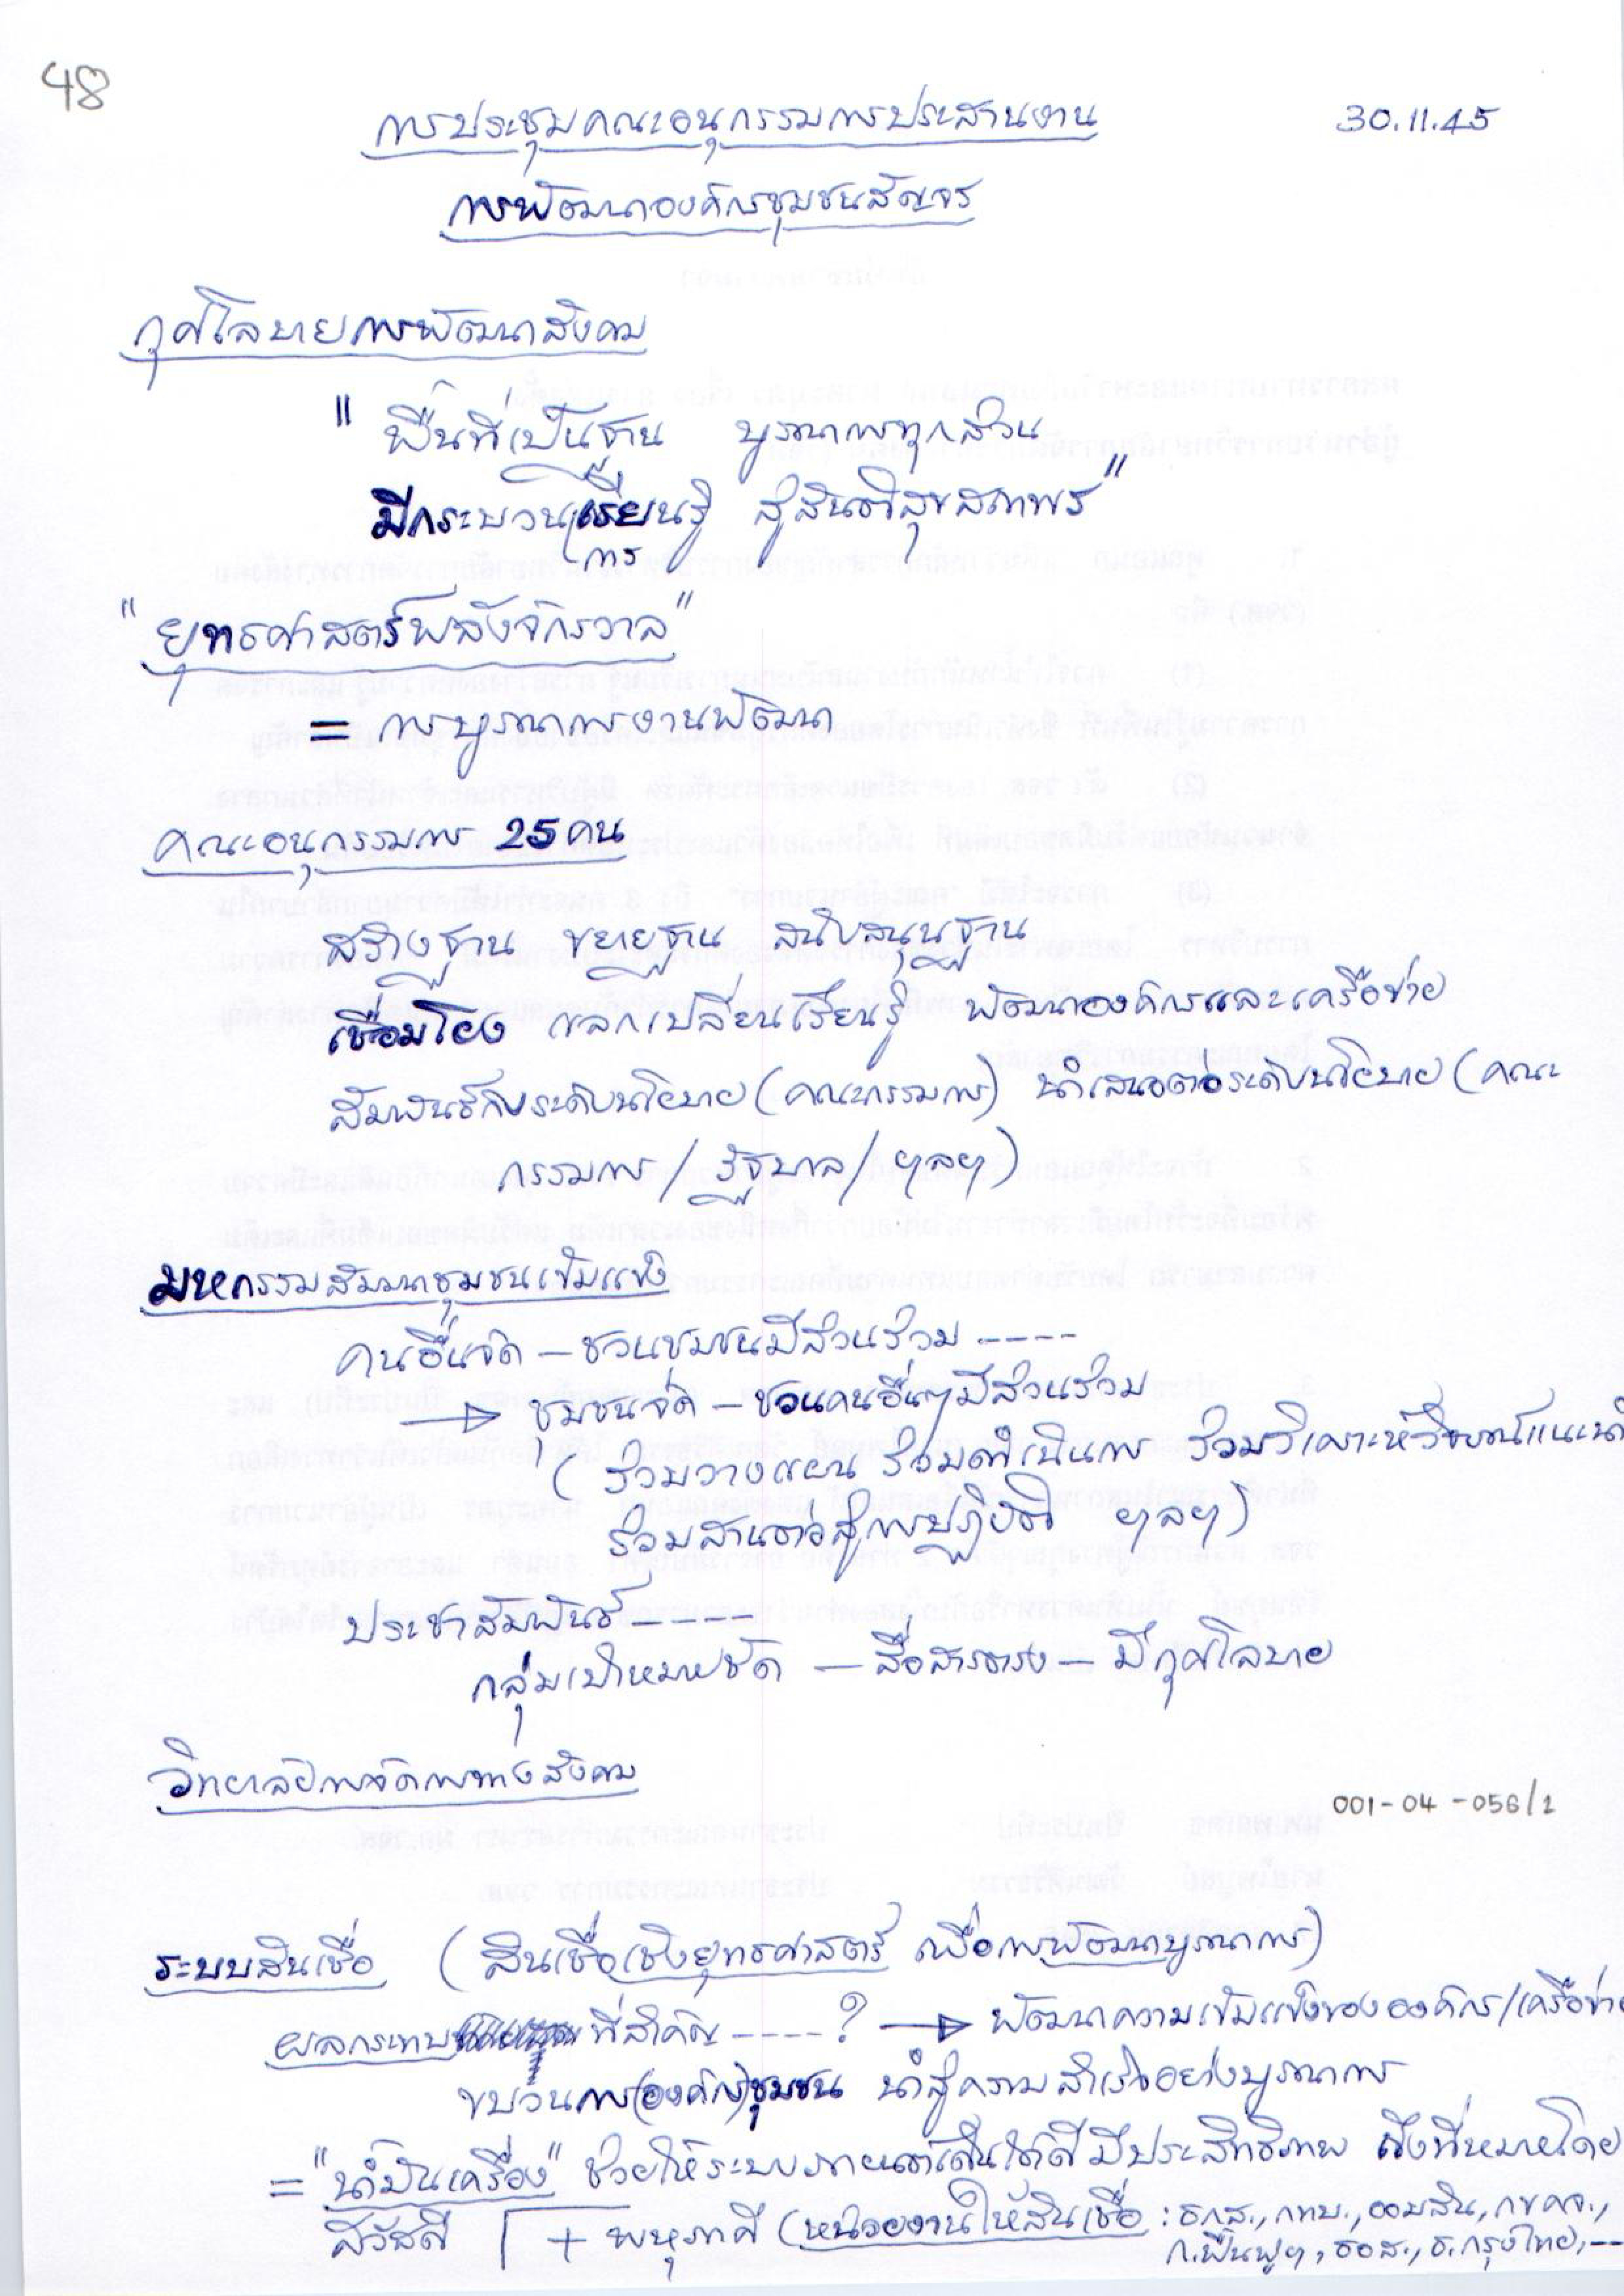 48
การประชุมคณะอนุกรรมการประสานงาน 30.11.45
การพัฒนาองค์กรชุมชนสัญจร
กุศโลบายการพัฒนาสังคม
"พื้นที่เป็นฐาน บูรณาการทุกส่วน
มีกระบวนการเรียนรู้ สู่สันติสุขสถาพร"
"ยุทธศาสตร์พลังจักรวาล"
= การบูรณาการงานพัฒนา
คณะอนุกรรมการ 25 คน
สร้างฐาน ขยายฐาน สนับสนุนฐาน
เชื่อมโยง แลกเปลี่ยนเรียนรู้ พัฒนาองค์กรและเครือข่าย
สัมพันธ์กับระดับนโยบาย (คณะกรรมการ) นำเสนอต่อระดับนโยบาย (คณะ
กรรมการ/รัฐบาล/ฯลฯ)
มหกรรมสัมมนาชุมชนเข้มแข็ง
คนอื่นจัด – ชวนชุมชนมีส่วนร่วม ----
→ ชุมชนจัด – ชวนคนอื่นๆมีส่วนร่วม
(ร่วมวางแผน ร่วมดำเนินการ ร่วมวิเคราะห์วิจารณ์แนะนำ
ร่วมสานต่อสู่การปฏิบัติ ฯลฯ)
ประชาสัมพันธ์ -----
กลุ่มเป้าหมายชัด – สื่อสารตรง – มีกุศโลบาย
วิทยาลัยการจัดการทางสังคม
001-04-056/1
ระบบสินเชื่อ (สินเชื่อเชิงยุทธศาสตร์ เพื่อการพัฒนาบูรณาการ)
ผลกระทบ ที่สำคัญ ----? → พัฒนาความเข้มแข็งขององค์กร/เครือข่าย
ขบวนการ(องค์กร)ชุมชน นำสู่ความสำเร็จอย่างบูรณาการ
= "น้ำมันเครื่อง" ช่วยให้ระบบ เดินได้ดี มีประสิทธิภาพ ถึงที่หมายโดย
สวัสดี + พหุภาคี (หน่วยงานให้สินเชื่อ : ธกส., กทบ., ออมสิน, กขคจ.,
ก.ฟื้นฟูฯ, ธอส., ธ.กรุงไทย, --